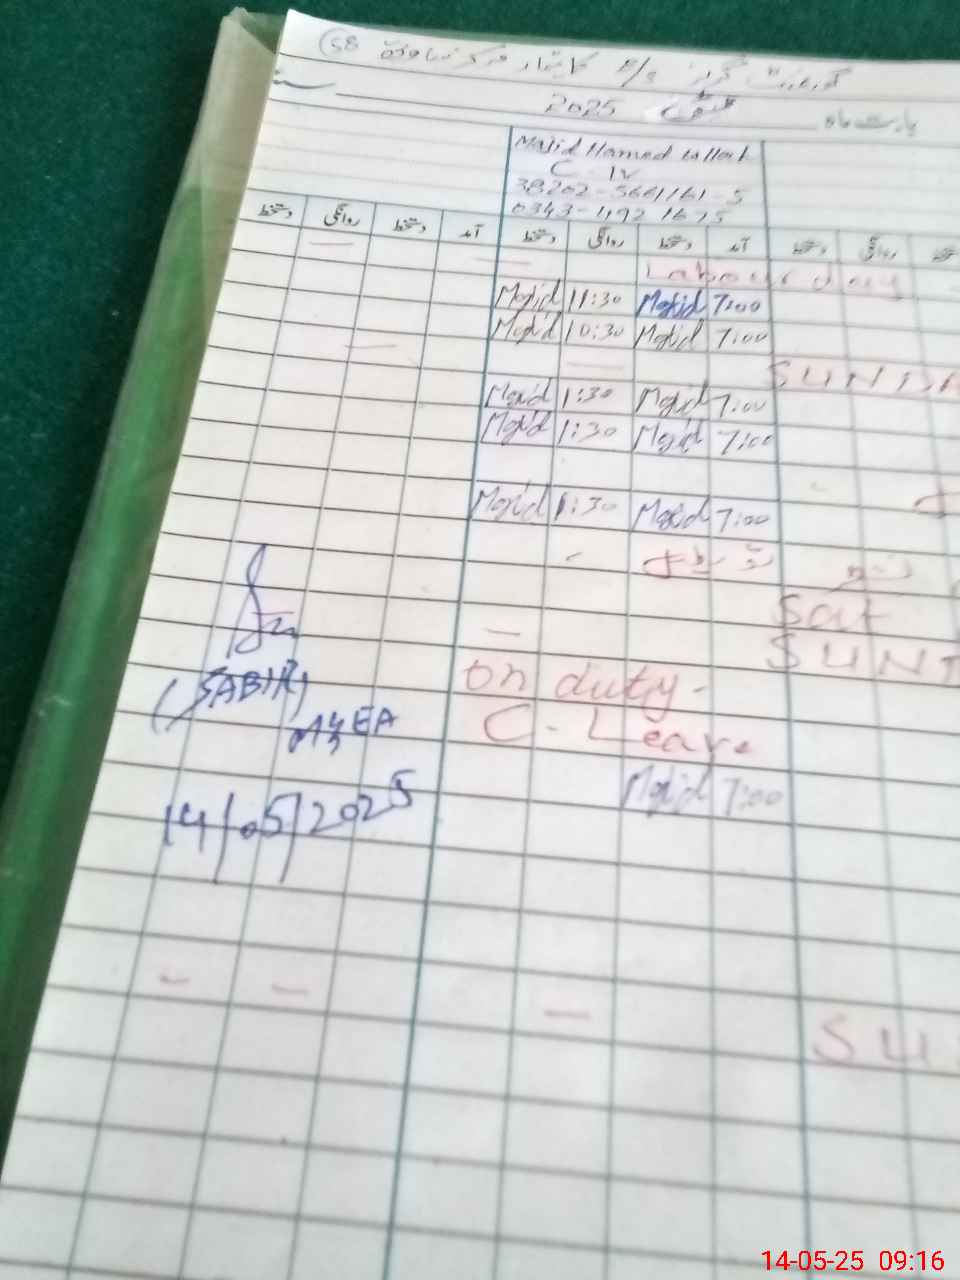 58
2025
بابت ماہ
Majid Hamed
C - IV
38202-5661161-5
0343-492 1675
دستخط روانگی دستخط آمد دستخط روانگی دستخط آمد دستخط روانگی
Labour day
Majid 11:30 Majid 7:00
Majid 10:30 Majid 7:00
SUNDA
Majid 1:30 Majid 7:00
Majid 1:30 Majid 7:00
Majid 1:30 Majid 7:00
Sat
SUN
on duty-
(SABIR)
MEA
C- Leave
Majid 7:00
14/05/2025
SU
14-05-25 09:16